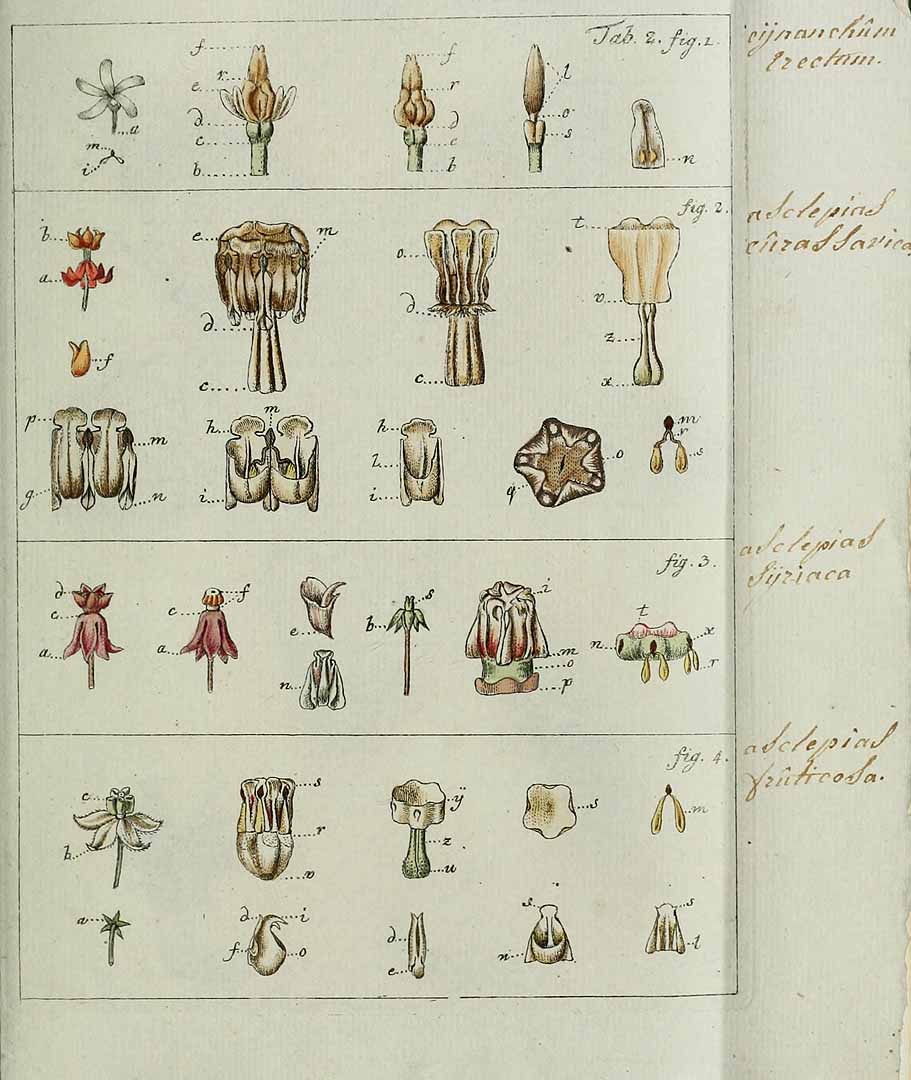 Tab. 2. fig. 1.
cijnanchûm
Erectum.
f
r
e
d
c
b
f
r
d
c
b
l
o
s
n
a
m
i
fig. 2.
asclepias
cûrassavica
b
a
f
e
m
d
c
o
d
c
t
v
z
x
p
m
g
n
h
m
i
h
l
i
o
q
m
r
s
fig. 3.
asclepias
Sijriaca
d
c
a
f
c
a
e
n
s
b
i
m
o
p
t
n
x
r
fig. 4.
asclepias
frûticosa.
c
b
s
r
v
ÿ
z
u
s
m
a
d
i
f
o
d
e
s
n
s
l